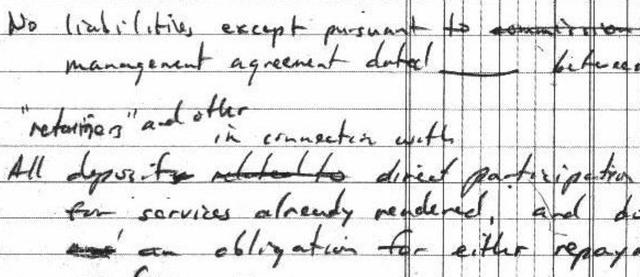 No liabilities except pursuant to commission
management agreement dated ____ between
"retainers" and other
in connection with
All deposits related to direct participation
for services already rendered, and do
an obligation for either repay